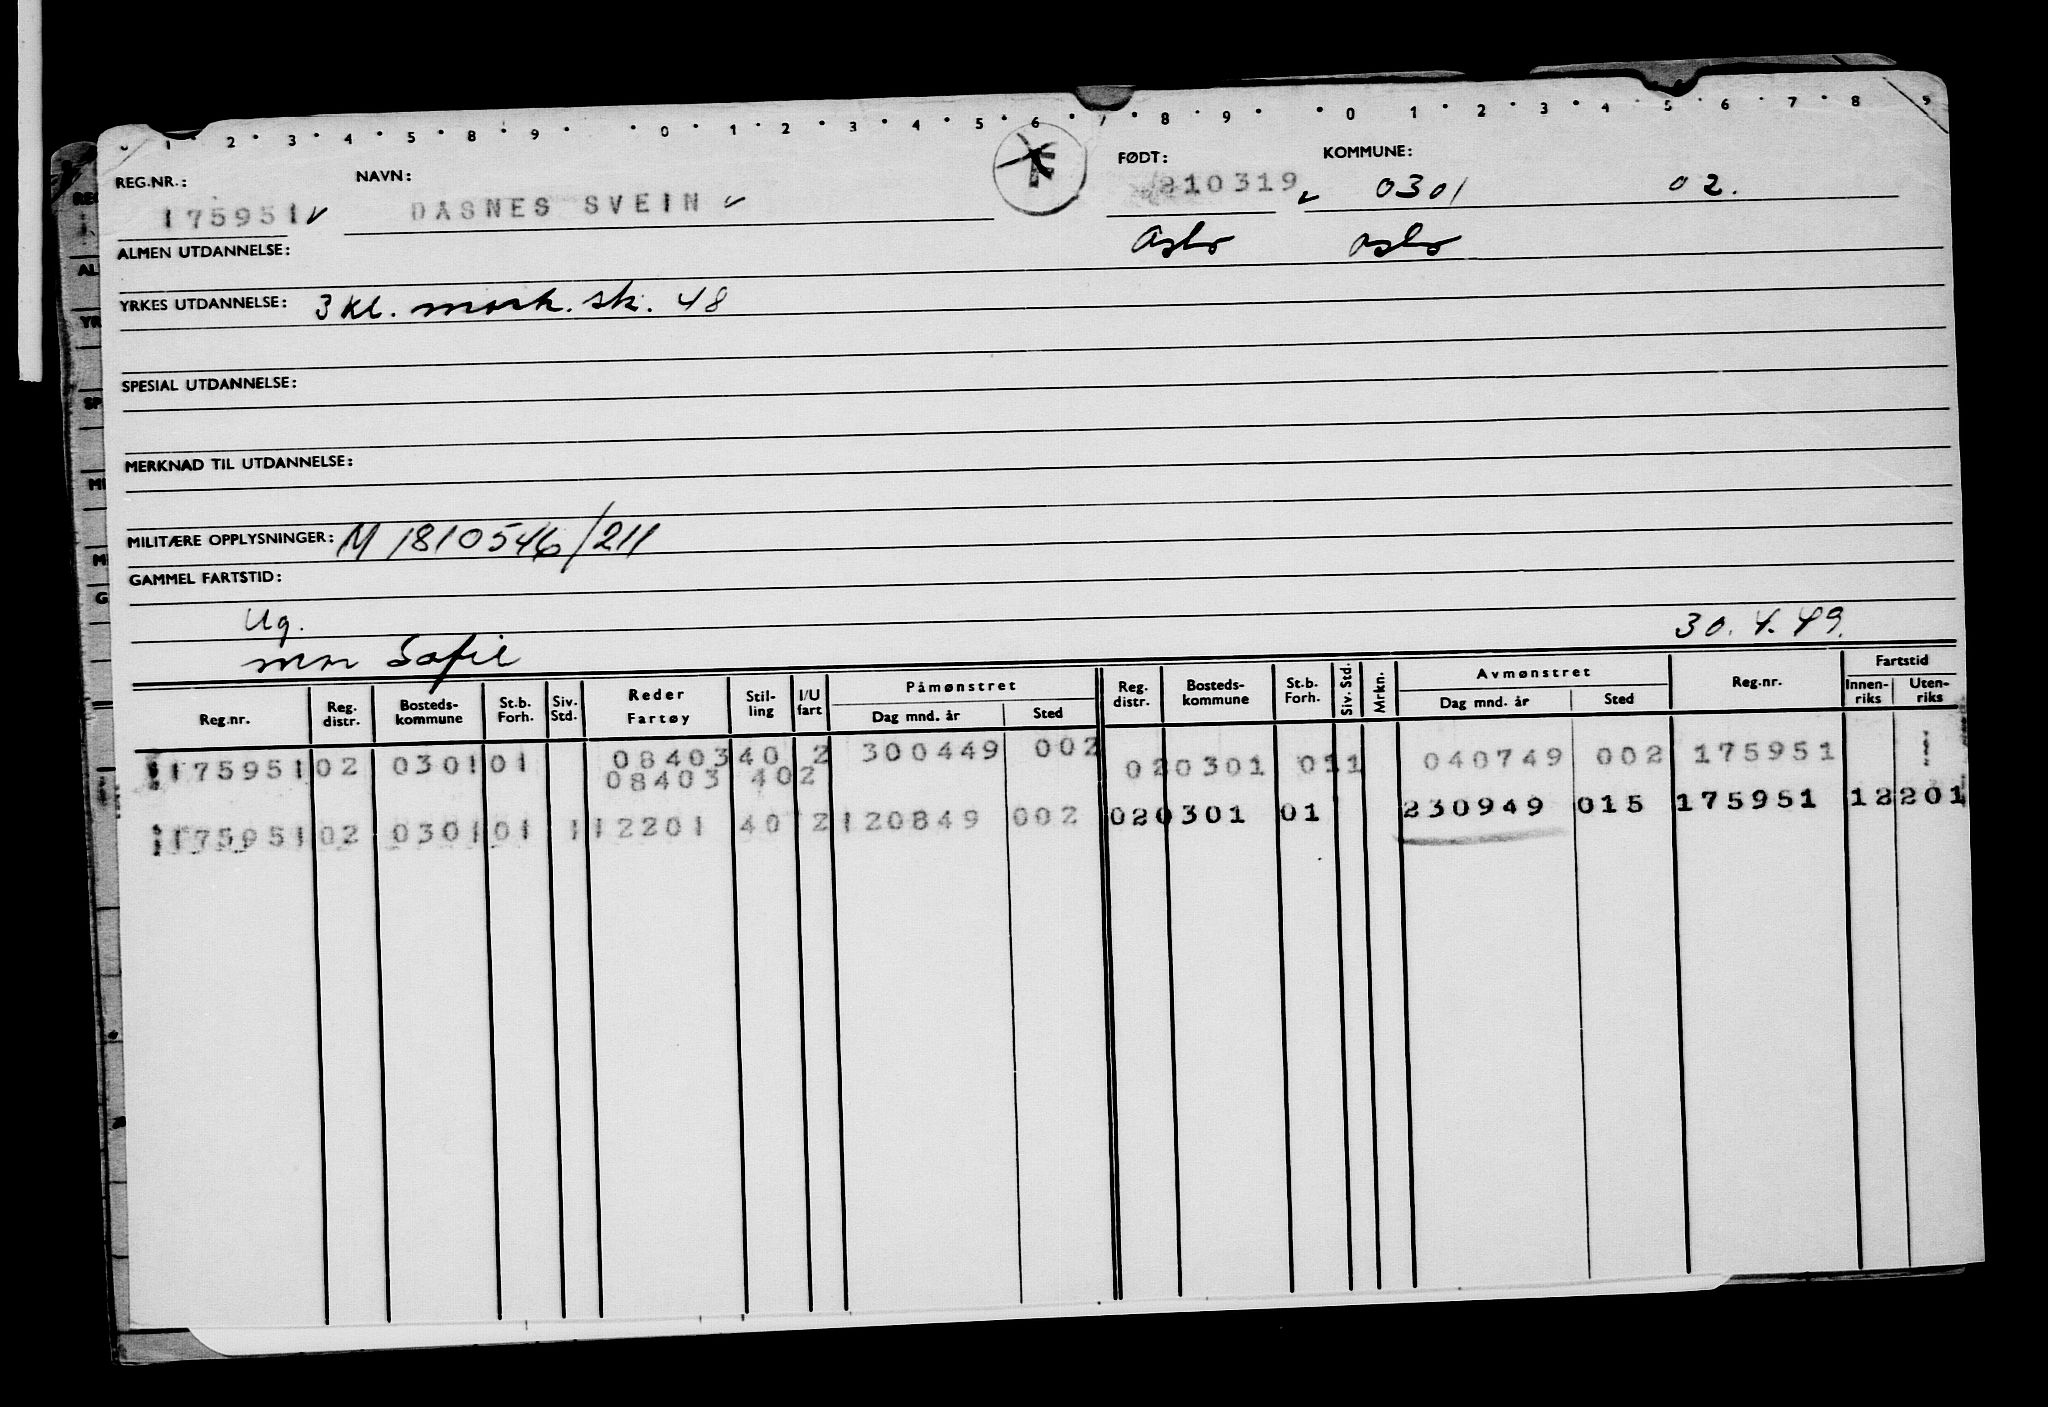 1 2 3 4 5 8 9 0 1 2 3 4 5 6 7 8 9 0 1 2 3 4 5 6 7 8 9
REG.NR.: NAVN: FØDT: KOMMUNE:
175951 DASNES SVEIN 210319 0301 02.
Oslo Oslo
ALMEN UTDANNELSE:
YRKES UTDANNELSE: 3 kl. mask. sk. 48
SPESIAL UTDANNELSE:
MERKNAD TIL UTDANNELSE:
MILITÆRE OPPLYSNINGER: M 1810546/211
GAMMEL FARTSTID:
Ug. 30.4.49.
mor Sofie
Reg.nr. Reg. distr. Bosteds-kommune St.b. Forh. Siv. Std. Reder Fartøy Stil-ling I/U fart Påmønstret Dag mnd. år Sted Reg. distr. Bosteds-kommune St.b. Forh. Siv. Std. Mrkn. Avmønstret Dag mnd. år Sted Reg.nr. Fartstid Innen-riks Uten-riks
175951 02 0301 01 08403 40 2 300449 002 02 0301 01 1 040749 002 175951
08403 40 2
175951 02 0301 01 1 12201 40 2 120849 002 02 0301 01 230949 015 175951 12201